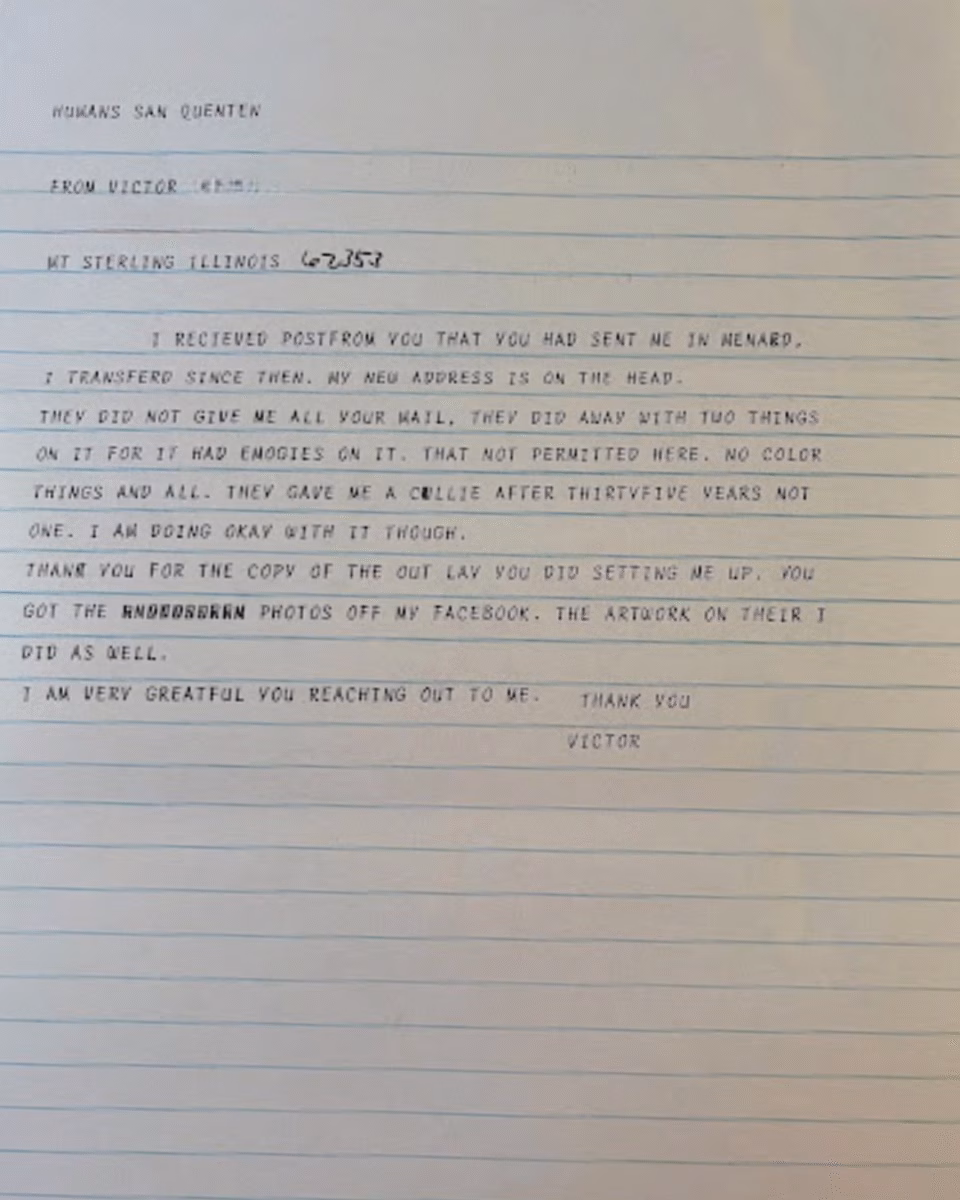 HUMANS SAN QUENTEN
FROM VICTOR
MT STERLING ILLINOIS 62353
I RECIEVED POSTFROM YOU THAT YOU HAD SENT ME IN MENARD.
I TRANSFERD SINCE THEN. MY NEW ADDRESS IS ON THE HEAD.
THEY DID NOT GIVE ME ALL YOUR MAIL, THEY DID AWAY WITH TWO THINGS
ON IT FOR IT HAD EMOGIES ON IT. THAT NOT PERMITTED HERE. NO COLOR
THINGS AND ALL. THEY GAVE ME A CULLIE AFTER THIRTYFIVE YEARS NOT
ONE. I AM DOING OKAY WITH IT THOUGH.
THANK YOU FOR THE COPY OF THE OUT LAY YOU DID SETTING ME UP. YOU
GOT THE PHOTOS OFF MY FACEBOOK. THE ARTWORK ON THEIR I
DID AS WELL.
I AM VERY GREATFUL YOU REACHING OUT TO ME. THANK YOU
VICTOR